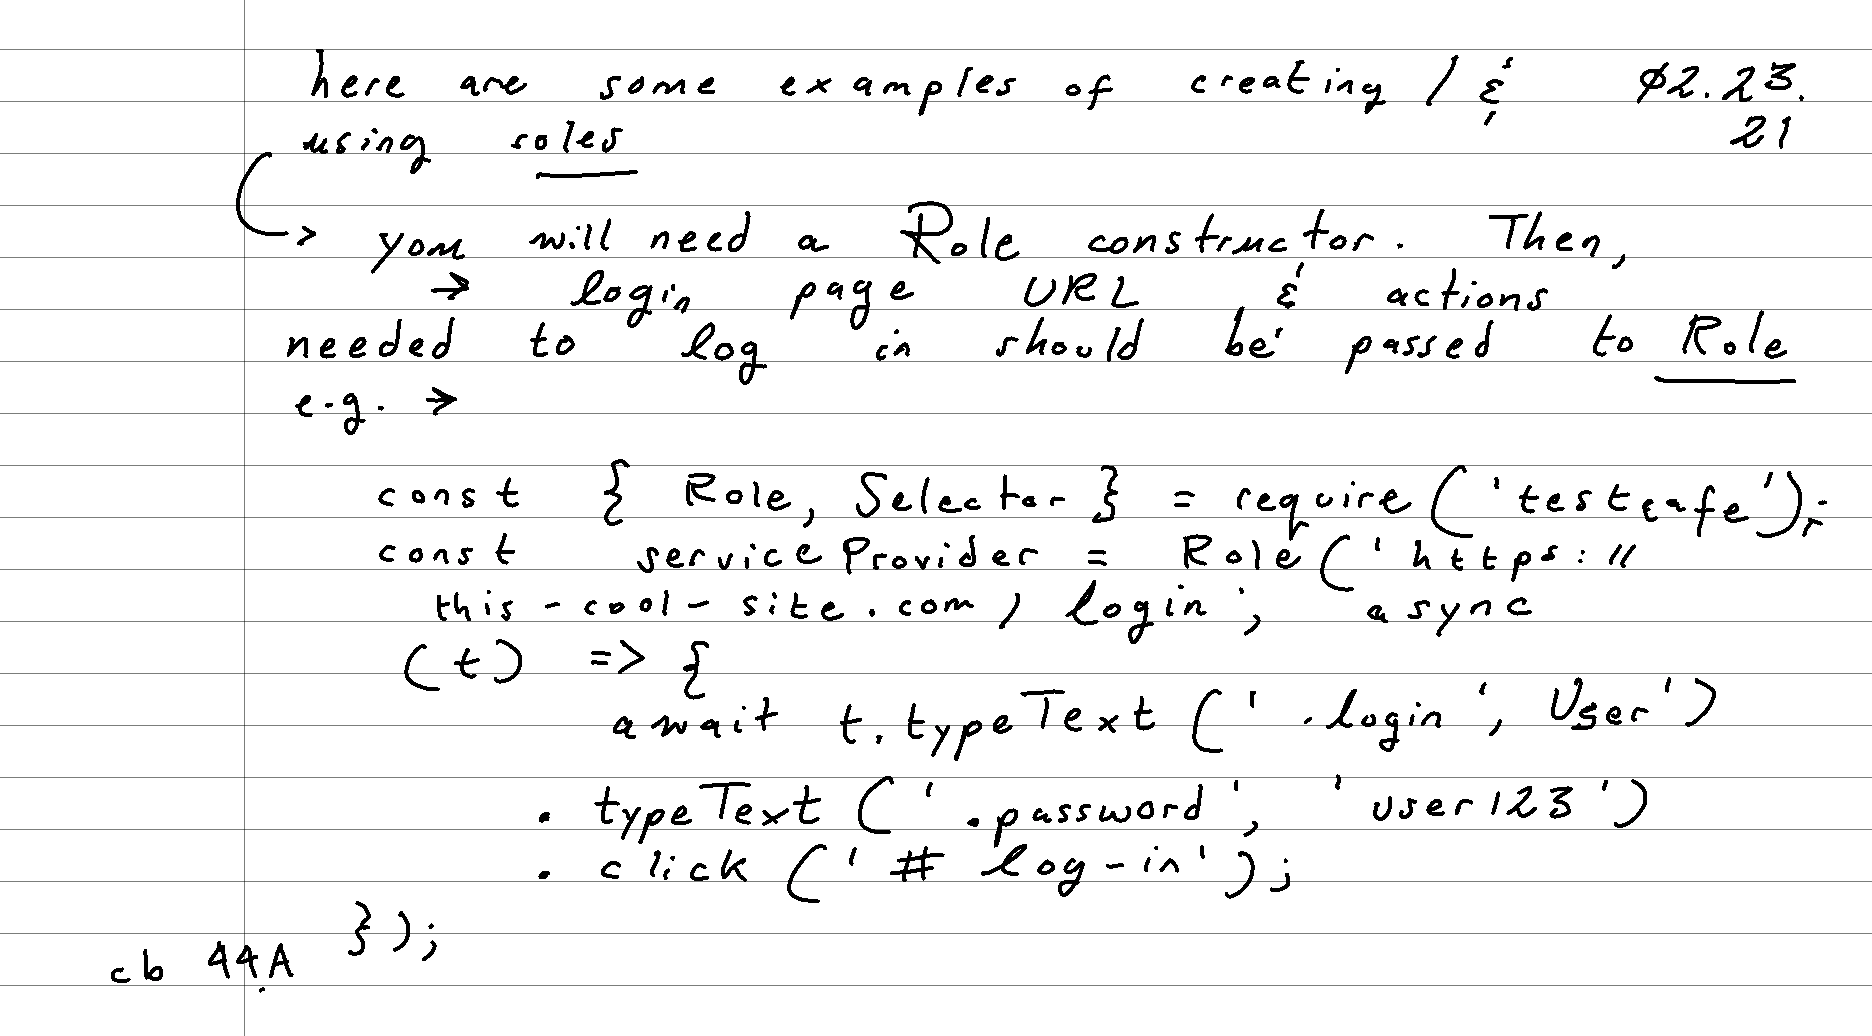 here are some examples of creating / & 02.23.
using roles 21
→ you will need a Role constructor. Then,
→ login page URL & actions
needed to log in should be passed to Role
e.g. →
const { Role, Selector } = require('testcafe');
const serviceProvider = Role('https://
this-cool-site.com/login', async
(t) => {
await t.typeText('.login', User')
.typeText('.password', 'user123')
.click('#log-in');
});
cb 44A